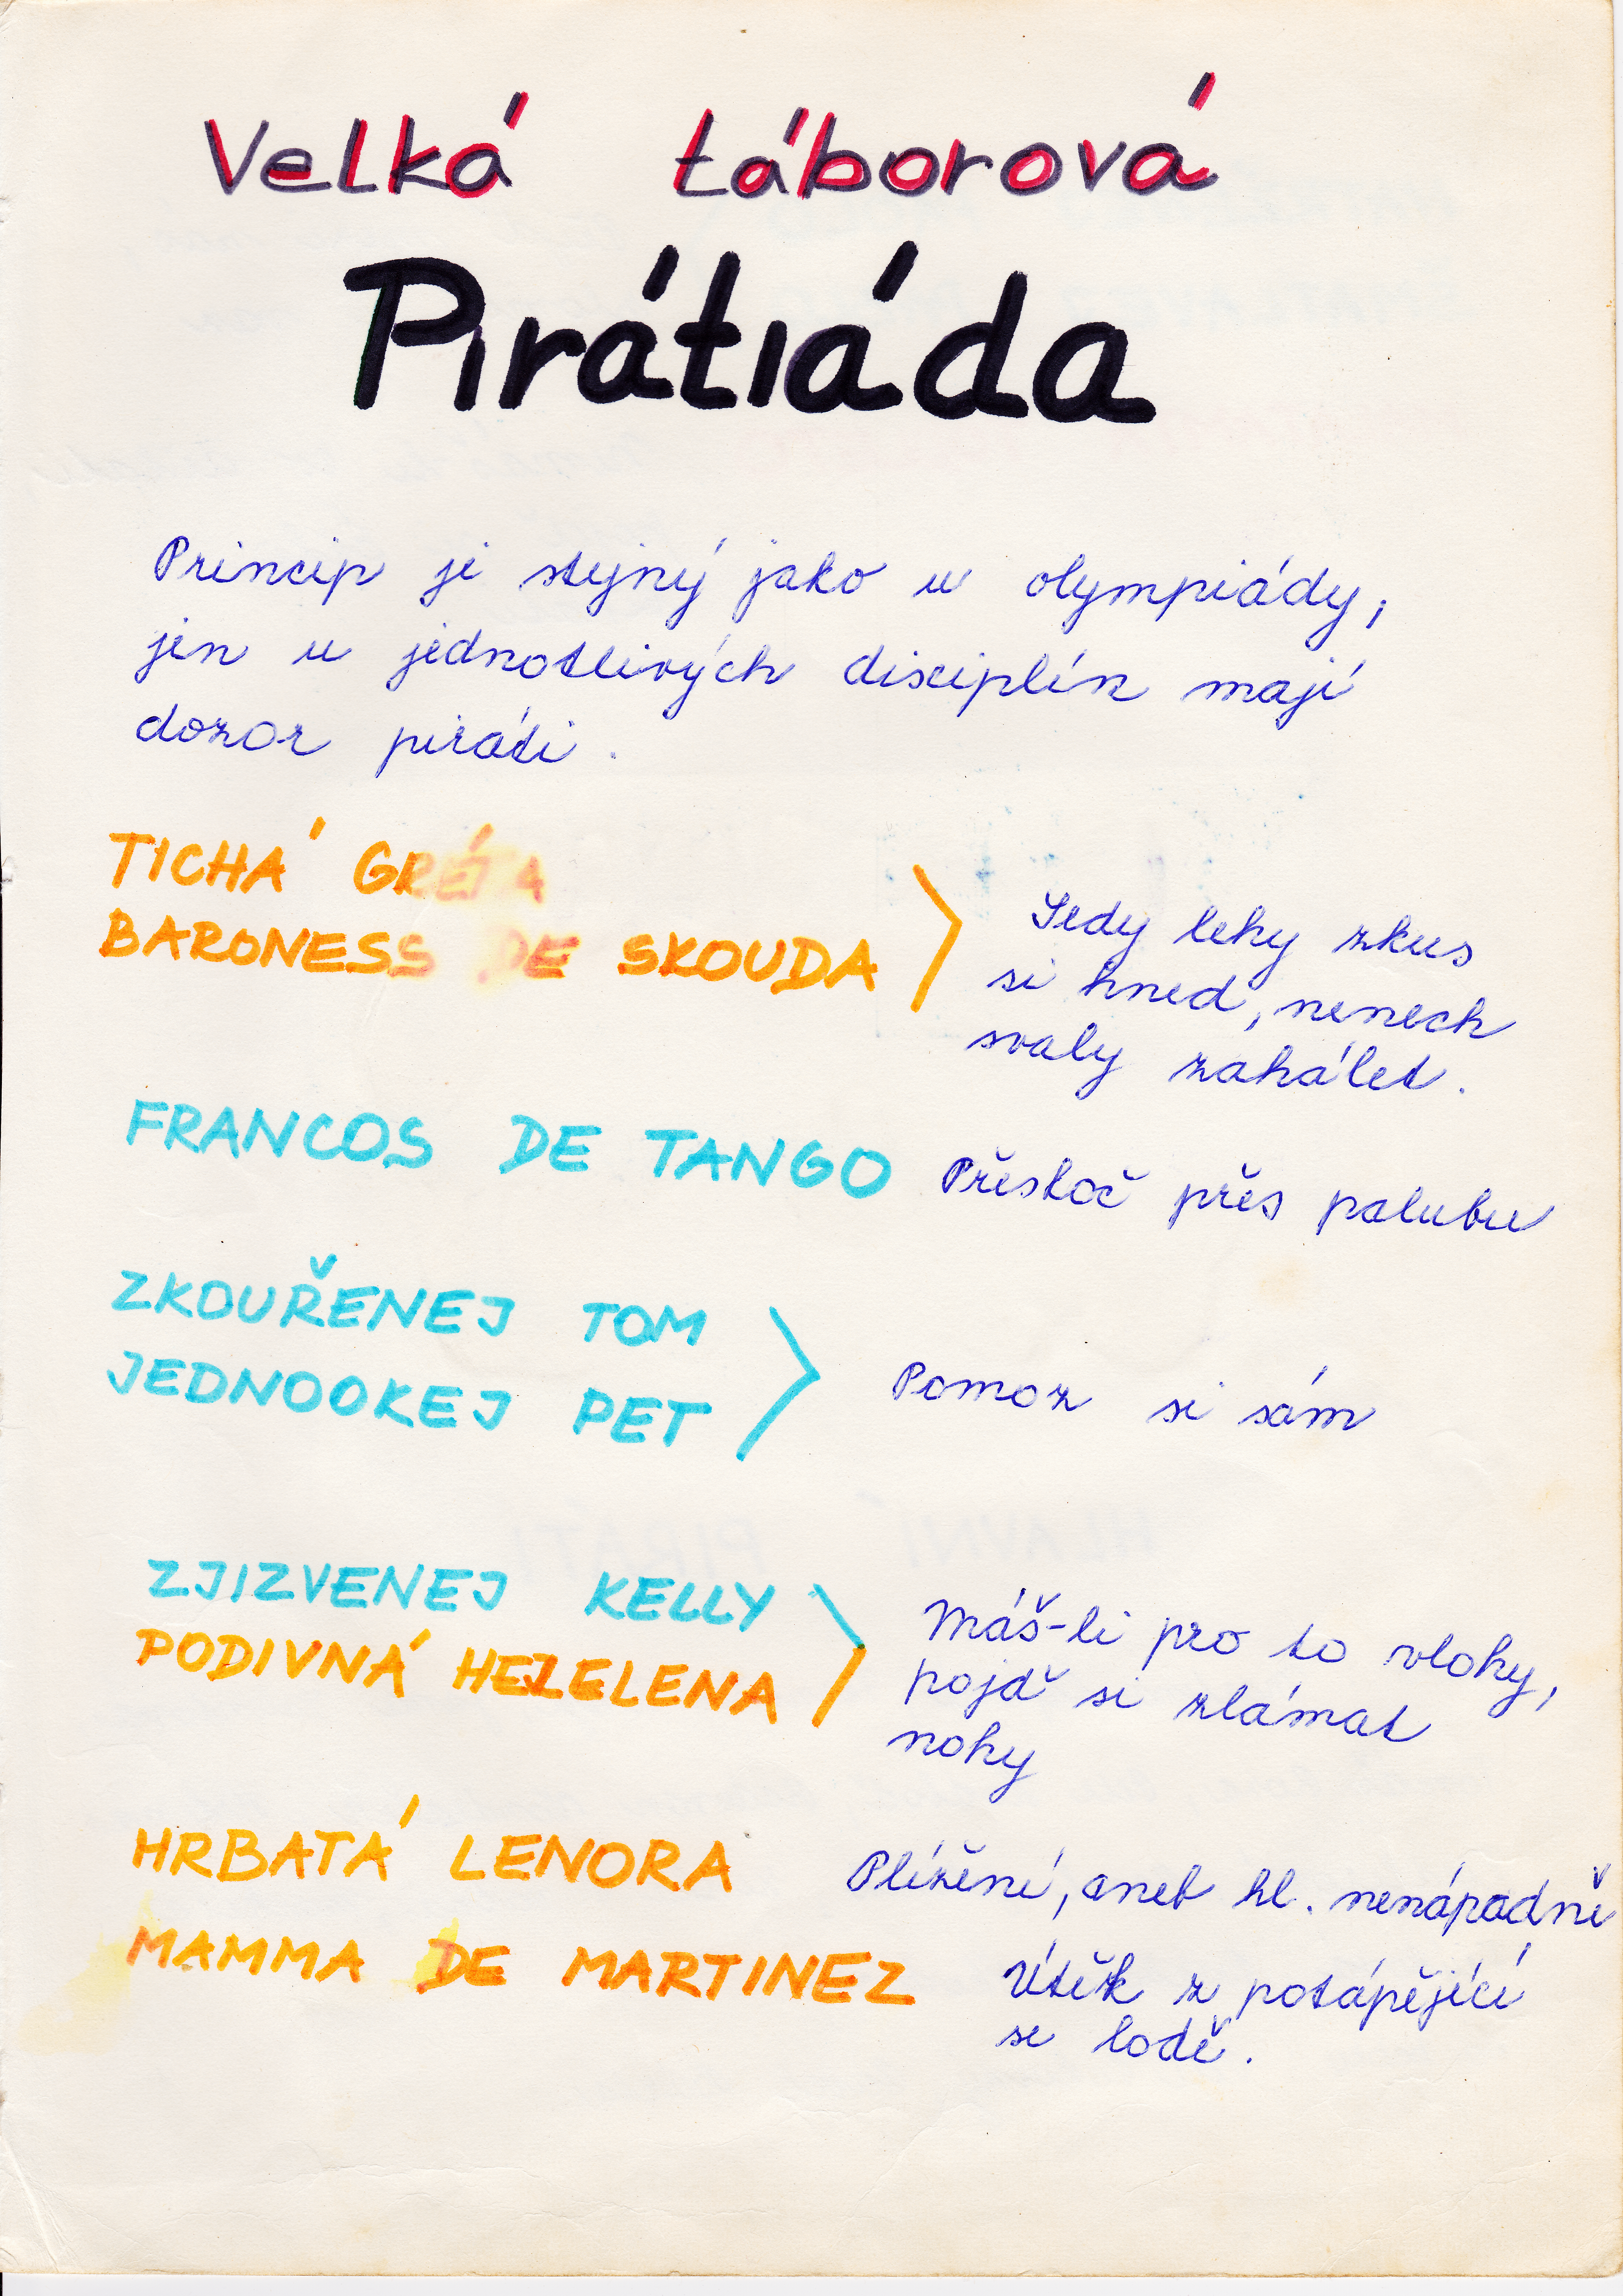 Velká táborová
Pirátiáda
Princip je stejný jako u olympiády,
jen u jednotlivých disciplín mají
dozor piráti.
TICHÁ GRÉTA
BARONESS DE SKOUDA
Sedy lehy zkus
si hned, nenech
svaly zahálet.
FRANCOS DE TANGO Přeskoč přes palubu
ZKOUŘENEJ TOM
JEDNOOKEJ PET
Pomoz si sám
ZJIZVENEJ KELLY
PODIVNÁ HEZELENA
Máš-li pro to vlohy,
pojď si zlámat
nohy
HRBATÁ LENORA Plížení, aneb hl. nenápadně
MAMMA DE MARTINEZ Útěk z potápějící
se lodě.